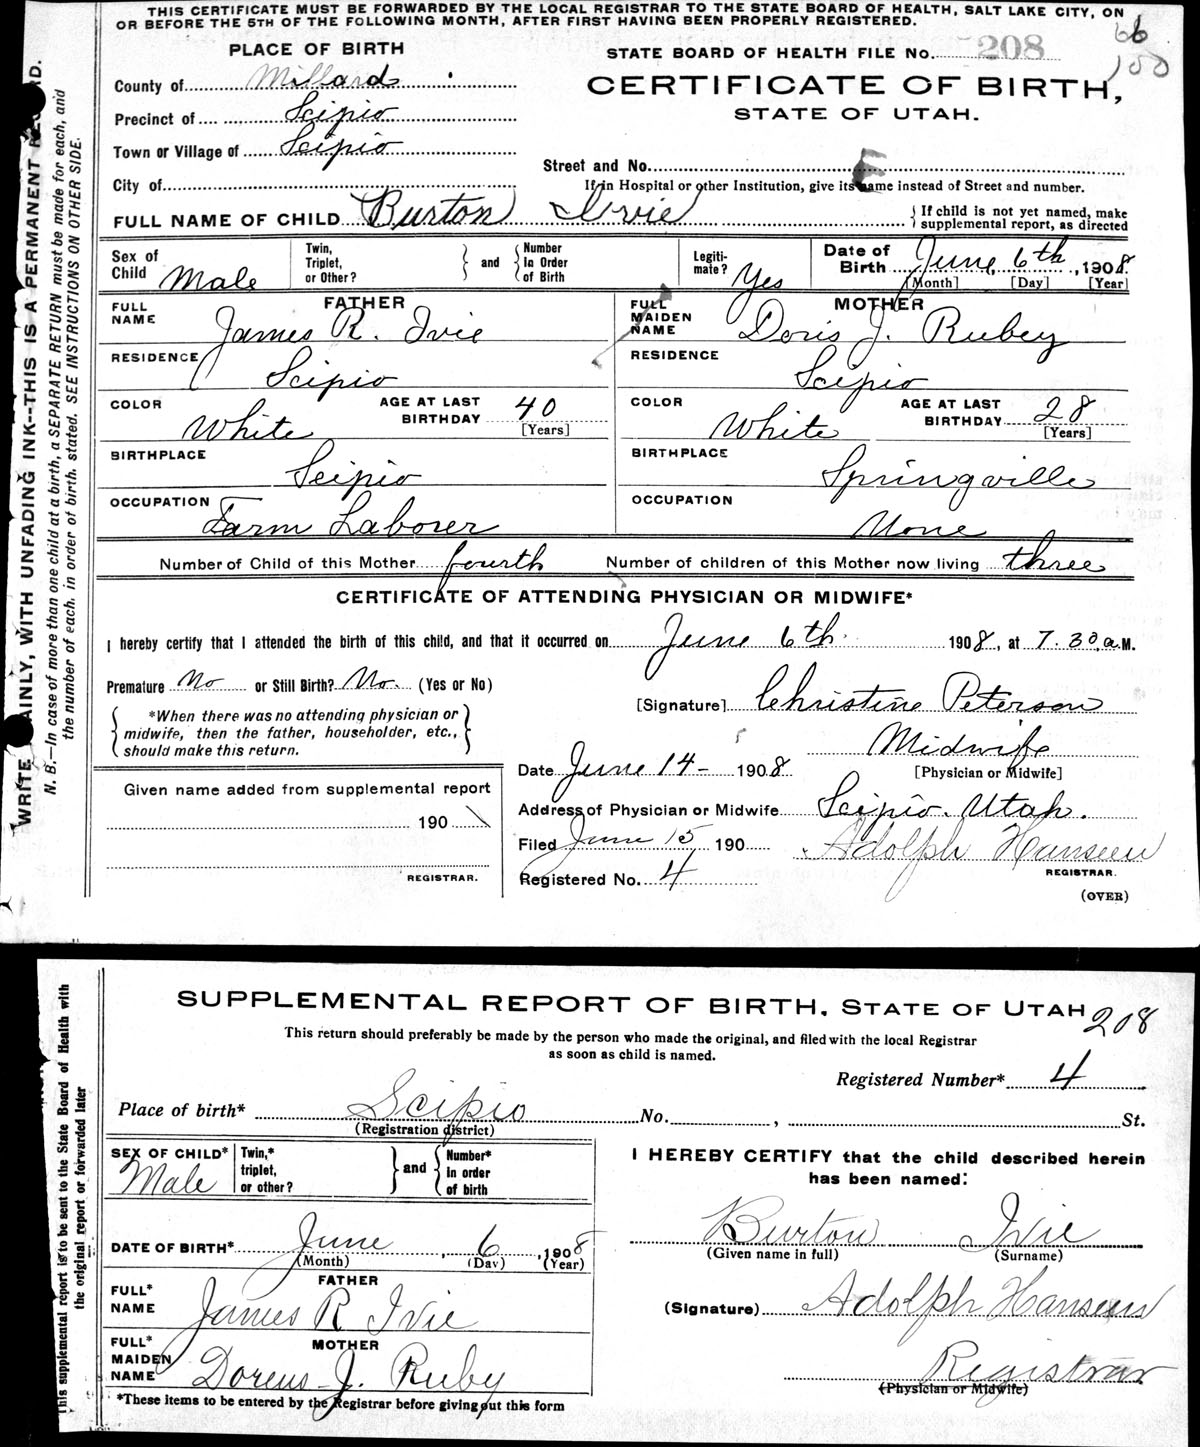 THIS CERTIFICATE MUST BE FORWARDED BY THE LOCAL REGISTRAR TO THE STATE BOARD OF HEALTH, SALT LAKE CITY, ON
OR BEFORE THE 5TH OF THE FOLLOWING MONTH, AFTER FIRST HAVING BEEN PROPERLY REGISTERED.
PLACE OF BIRTH
STATE BOARD OF HEALTH FILE No. 208
66
100
County of Millard
CERTIFICATE OF BIRTH,
STATE OF UTAH.
Precinct of Scipio
Town or Village of Scipio
Street and No.
City of
If in Hospital or other Institution, give its name instead of Street and number.
FULL NAME OF CHILD Burton Ivie
If child is not yet named, make
supplemental report, as directed
Sex of Child Male
Twin, Triplet, or Other? and Number In Order of Birth
Legiti-mate? Yes
Date of Birth June 6th, 1908.
[Month] [Day] [Year]
FATHER
FULL NAME James R. Ivie
RESIDENCE Scipio
COLOR White
AGE AT LAST BIRTHDAY 40
[Years]
BIRTHPLACE Scipio
OCCUPATION Farm Laborer
MOTHER
FULL MAIDEN NAME Doris J. Rubey
RESIDENCE Scipio
COLOR White
AGE AT LAST BIRTHDAY 28
[Years]
BIRTHPLACE Springville
OCCUPATION None
Number of Child of this Mother fourth Number of children of this Mother now living three
CERTIFICATE OF ATTENDING PHYSICIAN OR MIDWIFE*
I hereby certify that I attended the birth of this child, and that it occurred on June 6th. 1908, at 7.30, a.M.
Premature No or Still Birth? No. (Yes or No)
[Signature] Christine Peterson
*When there was no attending physician or
midwife, then the father, householder, etc.,
should make this return.
Midwife
[Physician or Midwife]
Date June 14- 1908
Given name added from supplemental report
190
REGISTRAR.
Address of Physician or Midwife Scipio. Utah.
Filed June 15 190
Adolph Hanseen
REGISTRAR.
Registered No. 4
(OVER)
WRITE PLAINLY, WITH UNFADING INK--THIS IS A PERMANENT RECORD.
N. B.—In case of more than one child at a birth, a SEPARATE RETURN must be made for each, and
the number of each, in order of birth, stated. SEE INSTRUCTIONS ON OTHER SIDE.
SUPPLEMENTAL REPORT OF BIRTH, STATE OF UTAH
208
This return should preferably be made by the person who made the original, and filed with the local Registrar
as soon as child is named.
Registered Number* 4
Place of birth* Scipio No. , St.
(Registration district)
SEX OF CHILD* Male
Twin,* triplet, or other? and Number* in order of birth
DATE OF BIRTH* June, 6, 1908
(Month) (Day) (Year)
FATHER
FULL* NAME James R Ivie
MOTHER
FULL* MAIDEN NAME Doreus J. Ruby
*These items to be entered by the Registrar before giving out this form
I HEREBY CERTIFY that the child described herein
has been named:
Burton Ivie
(Given name in full) (Surname)
(Signature) Adolph Hanseen
Registrar
(Physician or Midwife)
This supplemental report is to be sent to the State Board of Health with
the original report or forwarded later